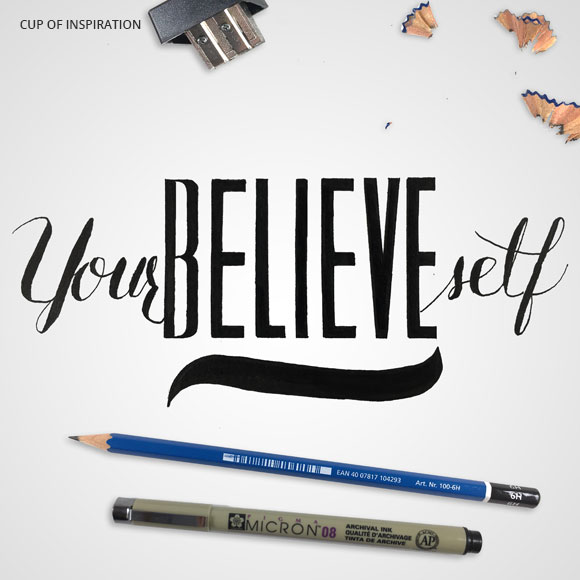 CUP OF INSPIRATION
Your BELIEVE self
EAN 40 07817 104293
Art. Nr. 100-6H
6H
MICRON 08
ARCHIVAL INK
QUALITÉ D'ARCHIVAGE
TINTA DE ARCHIVE
AP